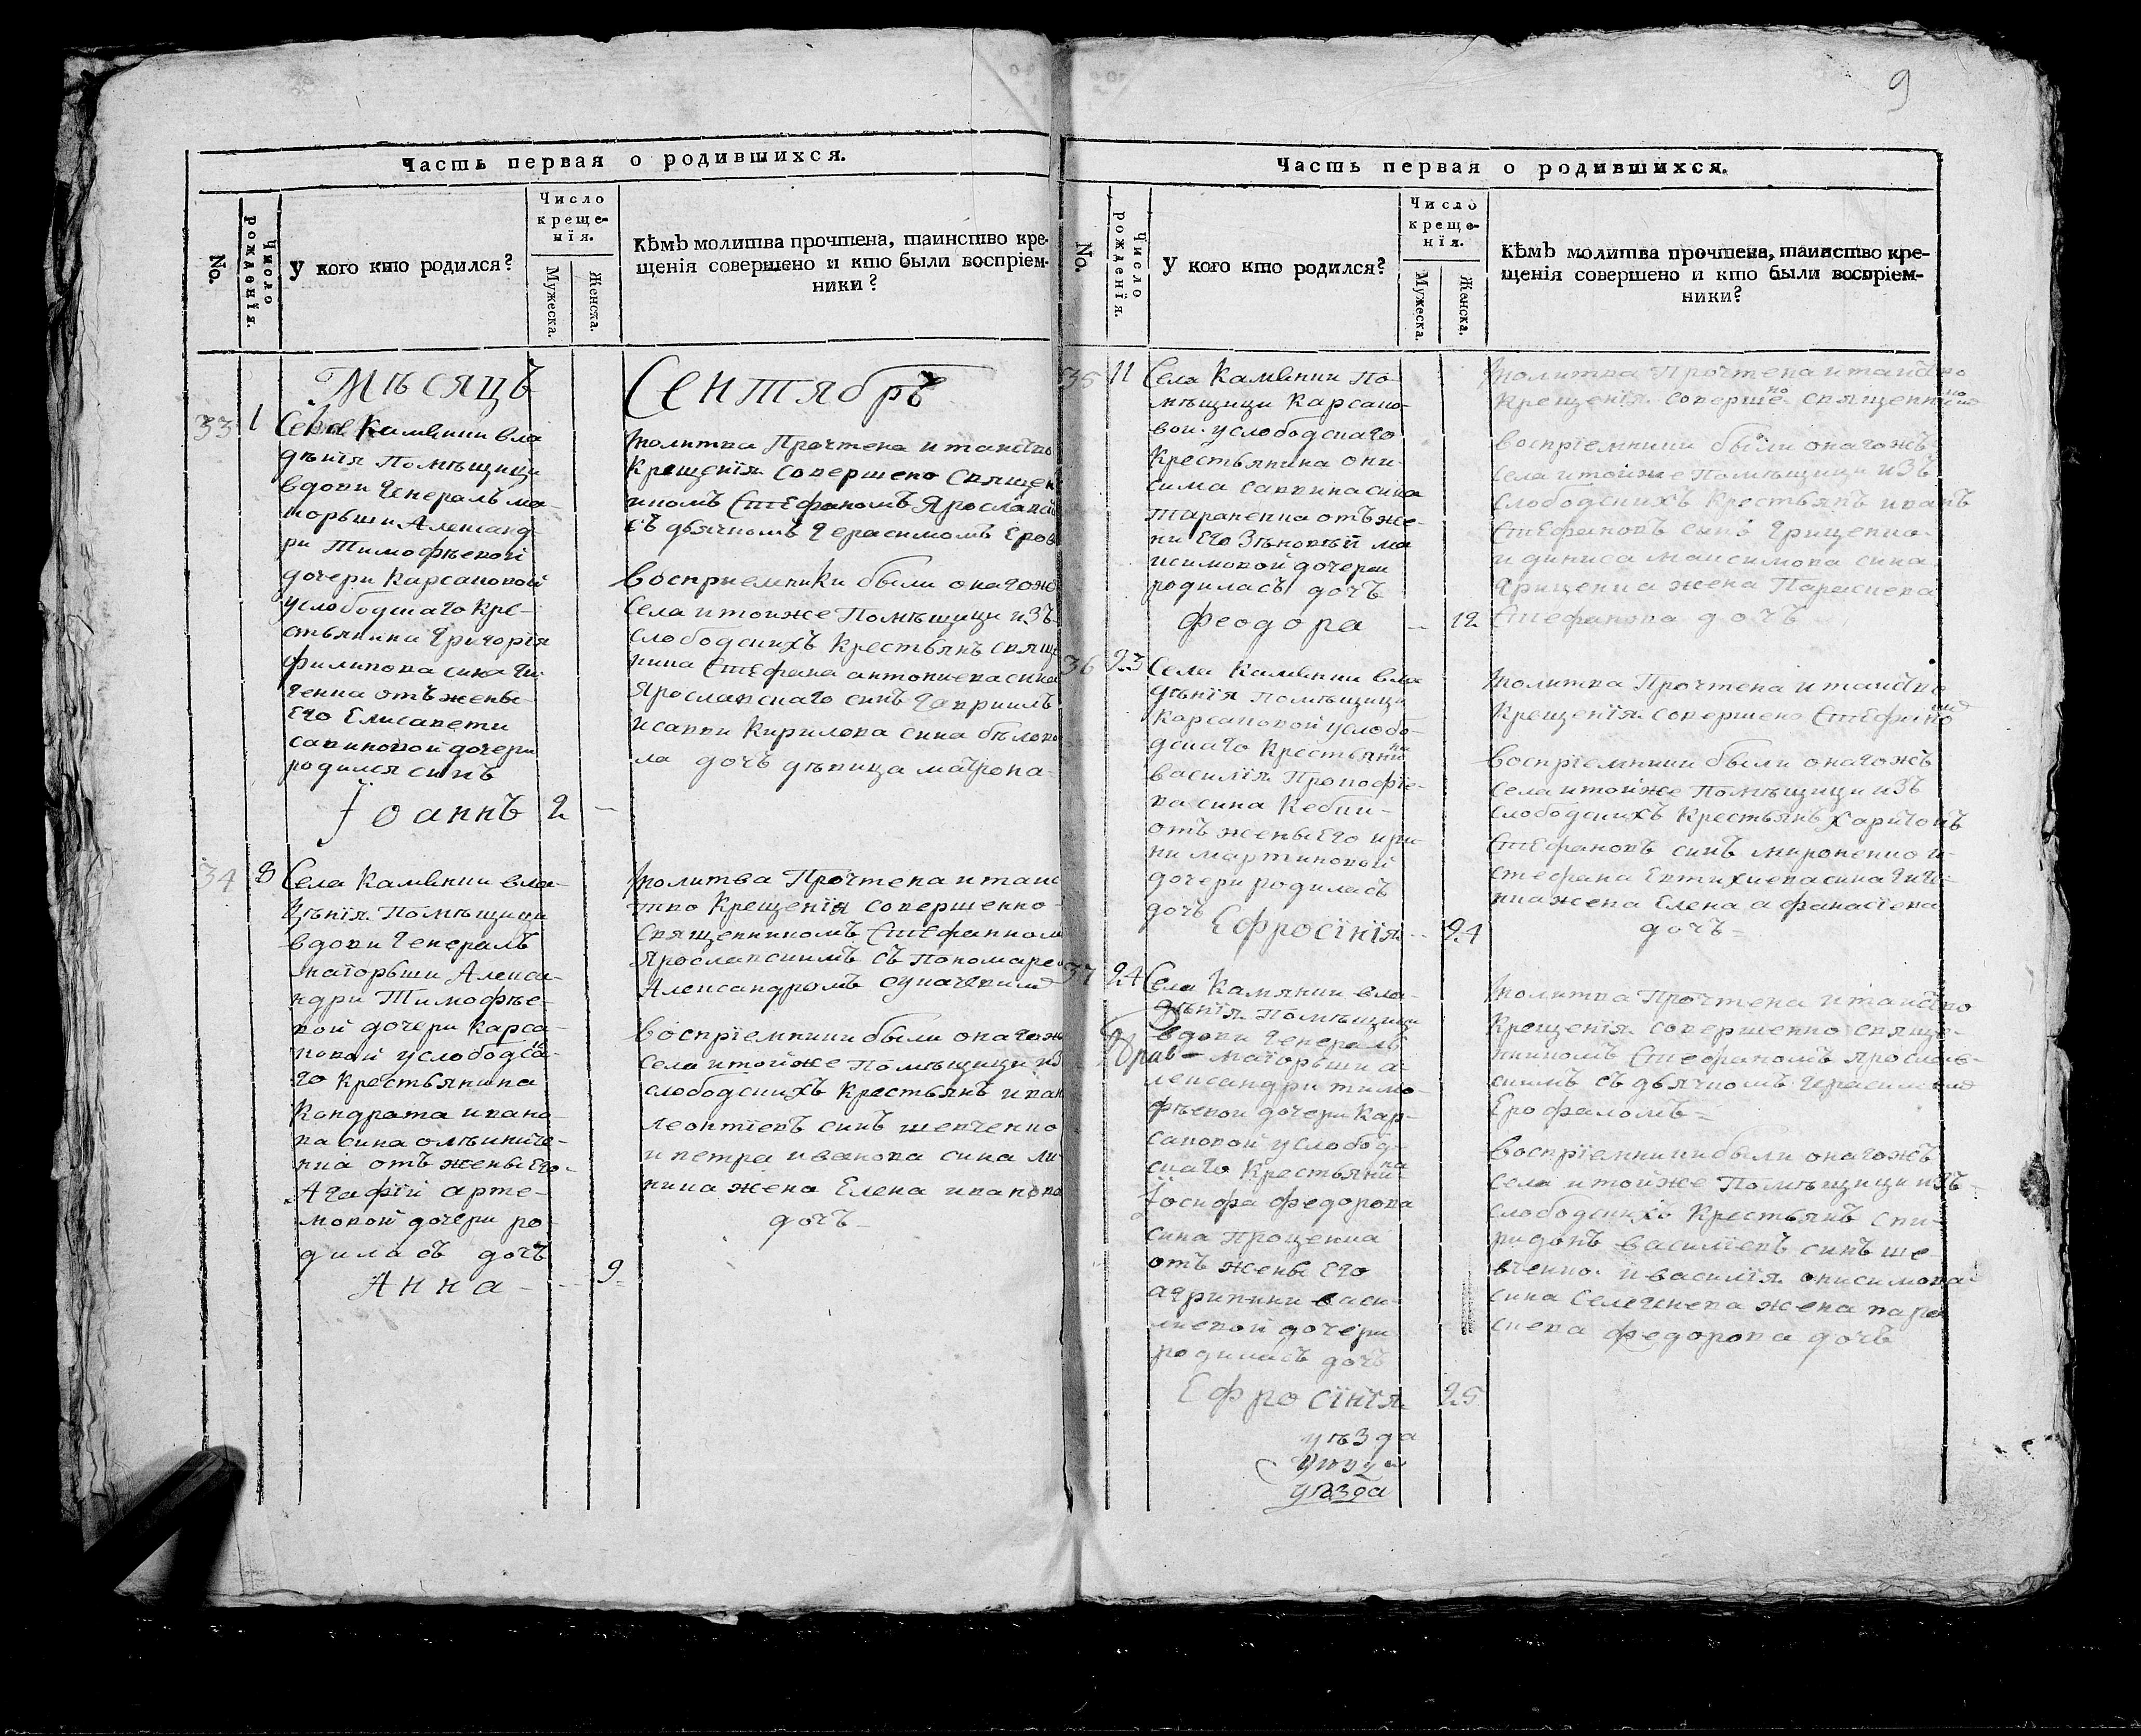 9
Часть первая о родившихся.
No.
Число рожденїя.
У кого кто родился?
Число
креще-
нїя.
Мужеска.
Женска.
Кѣмъ молитва прочтена, таинство кре-
щенїя совершено и кто были воспрїем-
ники?
Мѣсяцъ
Сентябрь
33
1
Села Камянки вла
дѣнїя Помѣщици
вдови Генералъ ма-
иорьши Алеѯанд-
ри Тимофѣевой
дочери Карсаковой
услободскаго кре-
стьянина Григорїя
филипова сина
отъ жены
Его Елисавети
савиновой дочери
родился синъ
Їоаннъ 2 —
молитва Прочтена и таинство
Крещенїя совершено Священ
никомъ Стефаномъ Ярославск
съ дьячкомъ Герасимомъ Еров
восприемники были онагожъ
Села и тоиже Помѣщици изъ
слободскихъ Крестьянъ свяще
ника Стефана антониева сина
Ярославскаго синъ Гавриилъ
и саввы Кирилова сина бѣлово
ла дочъ дѣвица матрона-
34
8
Села Камянки вла-
дѣнїя Помѣщици
вдови Генералъ
маїорьши Алекса-
ндри Тимофѣе-
вой дочери Карса-
ковой услободска-
го крестьянина
Кондрата ивано-
ва сина
отъ жены Его
Агафїи арте-
мовой дочери ро-
диласъ дочъ
Анна — 9
молитва Прочтена и таинс
тво Крещенїя совершенно
священникомъ Стефанном
Ярославскимъ съ Пономаремъ
Александромъ
воспрїемники были онагож
села и тойже Помѣщици из
слободскихъ Крестьянъ иван
леонтїевъ синъ шевченко
и петра иванова сина ли
жена Елена иванова
дочъ
Часть первая о родившихся.
No.
Число рожденїя.
У кого кто родился?
Число
креще-
нїя.
Мужеска.
Женска.
Кѣмъ молитва прочтена, таинство кре-
щенїя совершено и кто были воспрїем-
ники?
35
11
Села Камянки По-
мѣщици Карсако-
вои услободскаго
Крестьянина они-
сима саввина сина
тараненка отъ же-
ни Его Зѣновїй ма
ксимовой дочери
родиласъ дочъ
феодора — 12
молитва Прочтена и таинство
крещенїя совершено священником
воспрїемники были онагожъ
Села и тоиже Помѣщици изъ
Слободскихъ Крестьянъ иванъ
Стефановъ синъ Гриценко
и диниса максимова сина
Гриценка жена Параскева
Стефанова дочъ
36
23
Села Камянки вла
дѣнїя помѣщици
Карсаковой услобо-
дскаго Крестьянина
василїя Прокофїе-
ва сина
отъ жены Его ири-
ни мартиновой
дочери родиласъ
дочъ Ефросїнїя — 24
молитва Прочтена и таинство
Крещенїя совершено
воспрїемники были онагожъ
Села и тойже Помѣщици изъ
слободскихъ Крестьянъ Харитонъ
Стефановъ синъ мироненко и
стефана Евтихиева сина
жена Елена афанасїева
дочъ
37
24
Села Камянки вла-
дѣнїя Помѣщици
вдови Генералъ
маїорьши а-
лександри тимо-
фѣевой дочери Кар-
саковой услобод-
скаго Крестьянина
Їосифа федорова
Сина Проценка
отъ жены Его
агрипини васи-
лиевой дочери
родиласъ дочъ
Ефросїнїя 25
молитва Прочтена и таинство
Крещенїя совершенно свяще-
нникомъ Стефаномъ Ярослав-
скимъ съ дьячкомъ Герасимомъ
Ерофаломъ
воспрїемники были онагожъ
села и тойже Помѣщици изъ
слободскихъ Крестьянъ Спи-
ридонъ василїевъ синъ ше
вченко и василїя онисимова
сина жена пара
скева федорова дочъ
уѣзда
уѣзда